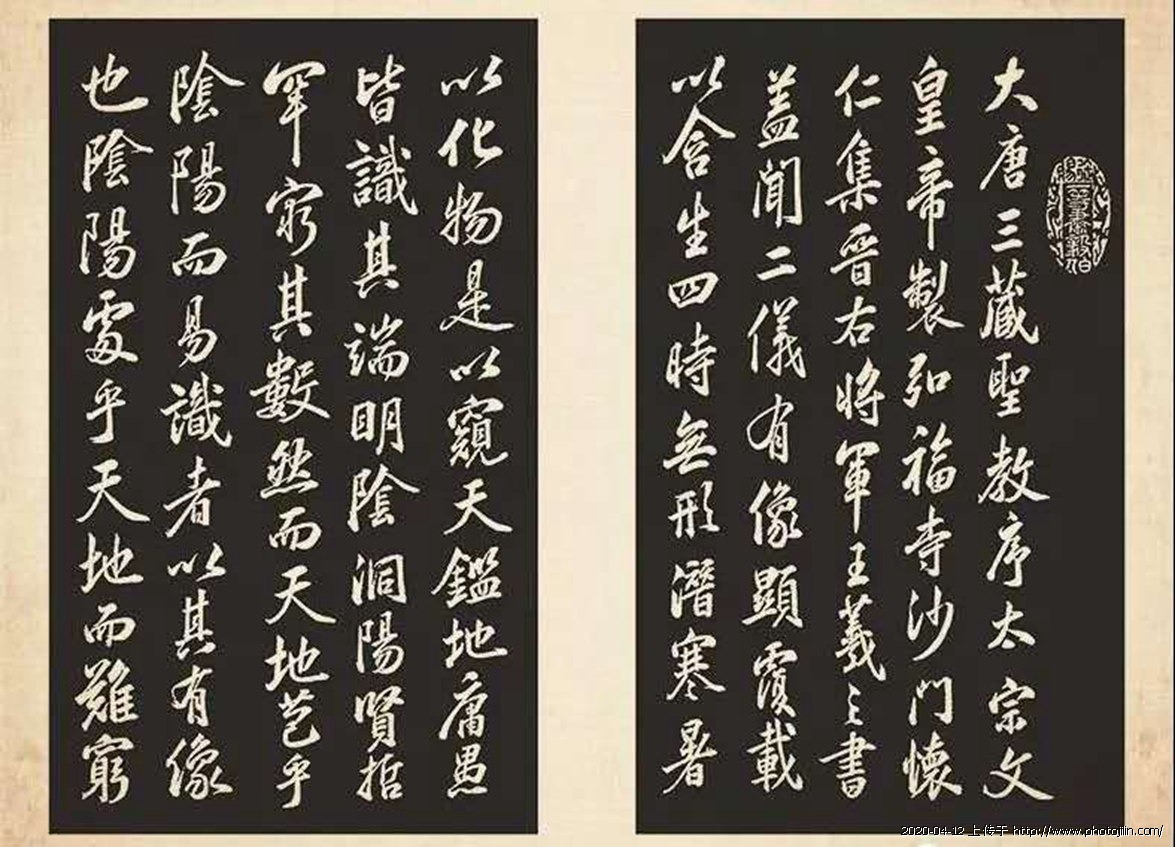 大唐三藏聖教序太宗文
皇帝製弘福寺沙門懷
仁集晉右將軍王羲之書
盖聞二儀有像顯覆載
以含生四時無形潛寒暑
以化物是以窺天鑑地庸愚
皆識其端明陰洞陽賢哲
罕窮其數然而天地苞乎
陰陽而易識者以其有像
也陰陽處乎天地而難窮
2020-04-12 上传于 http://www.photojilin.com/